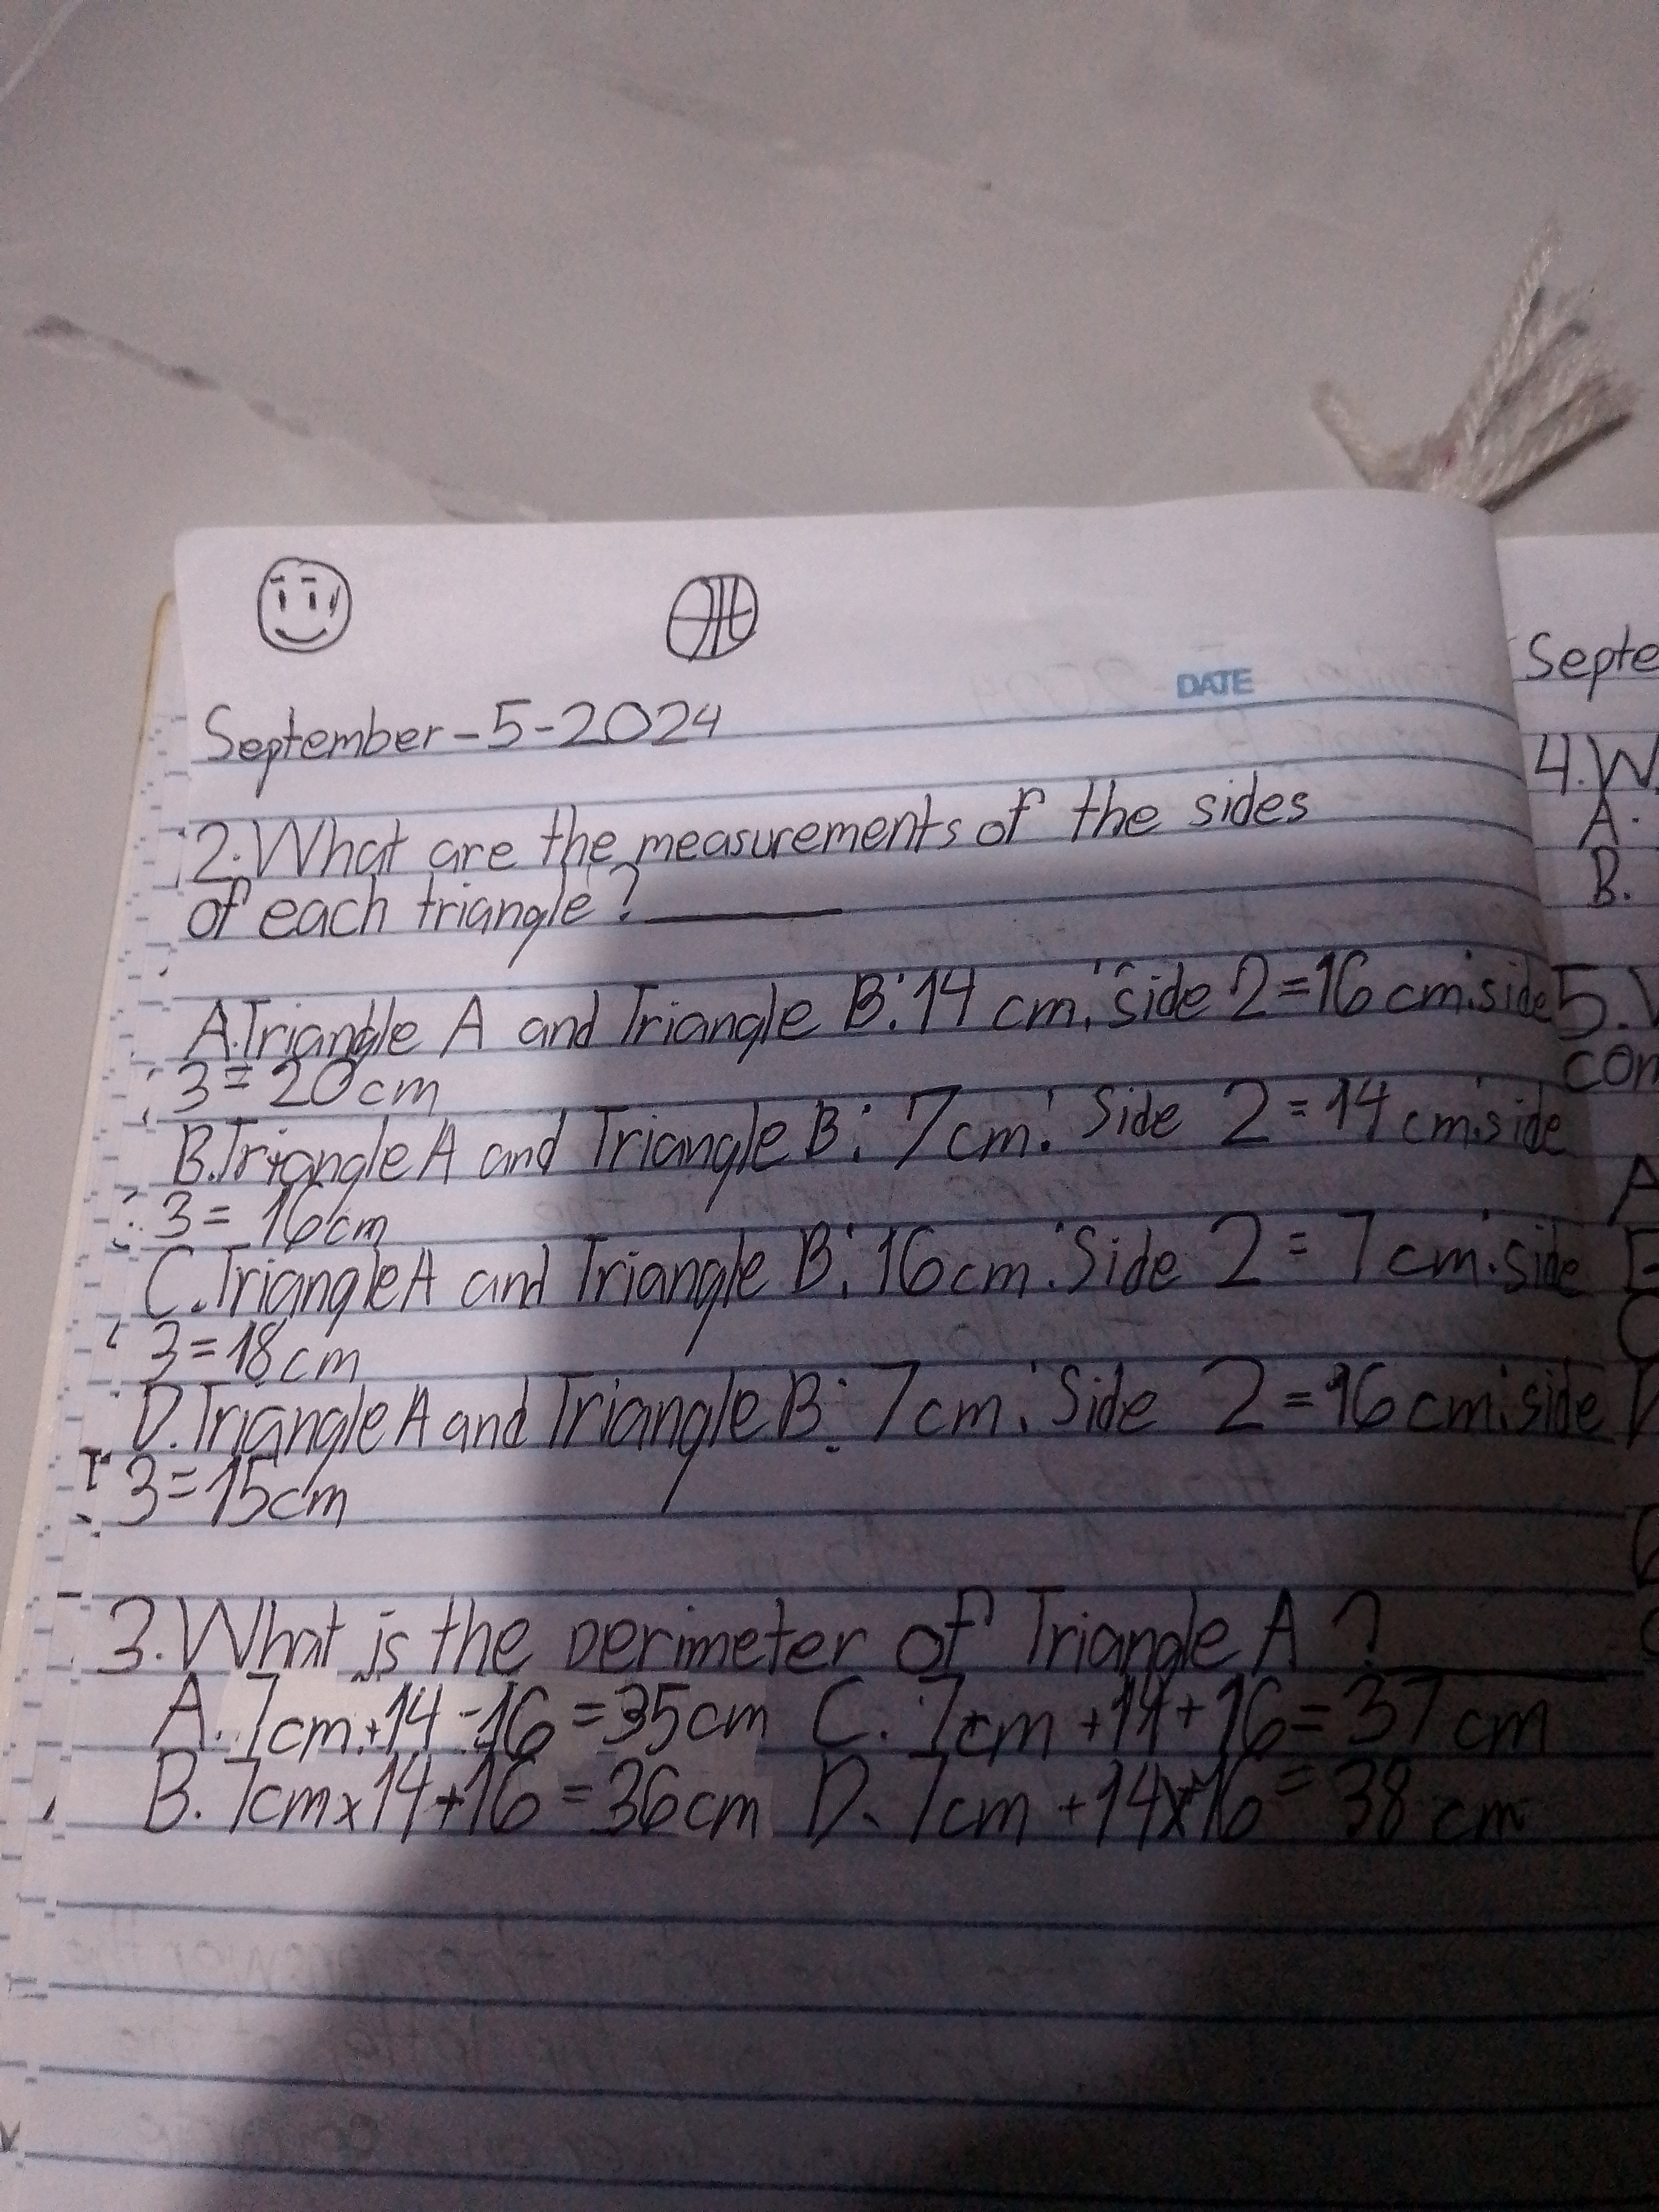 DATE
September-5-2024
2. What are the measurements of the sides
of each triangle? ______
A. Triangle A and Triangle B: 14 cm. Side 2 = 16 cm. side
3 = 20 cm
B. Triangle A and Triangle B: 7 cm. Side 2 = 14 cm. side
3 = 16 cm
C. Triangle A and Triangle B: 16 cm. Side 2 = 7 cm. side
3 = 18 cm
D. Triangle A and Triangle B: 7 cm. Side 2 = 16 cm. side
3 = 15 cm
3. What is the perimeter of Triangle A? ______
A. 7cm + 14 - 16 = 35 cm C. 7cm + 14 + 16 = 37 cm
B. 7cm x 14 + 16 = 36 cm D. 7cm + 14 x 16 = 38 cm
Septe
4. W
A.
B.
5.
con
A